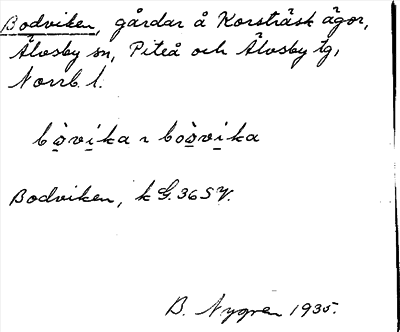 Bodviken, gårdar å Korsträsk ägor,
Älvsby sn, Piteå och Älvsby tg,
Norrb. l.
bòvika ~ boòvika
Bodviken, k G. 36 SV.
B. Nygren 1935.